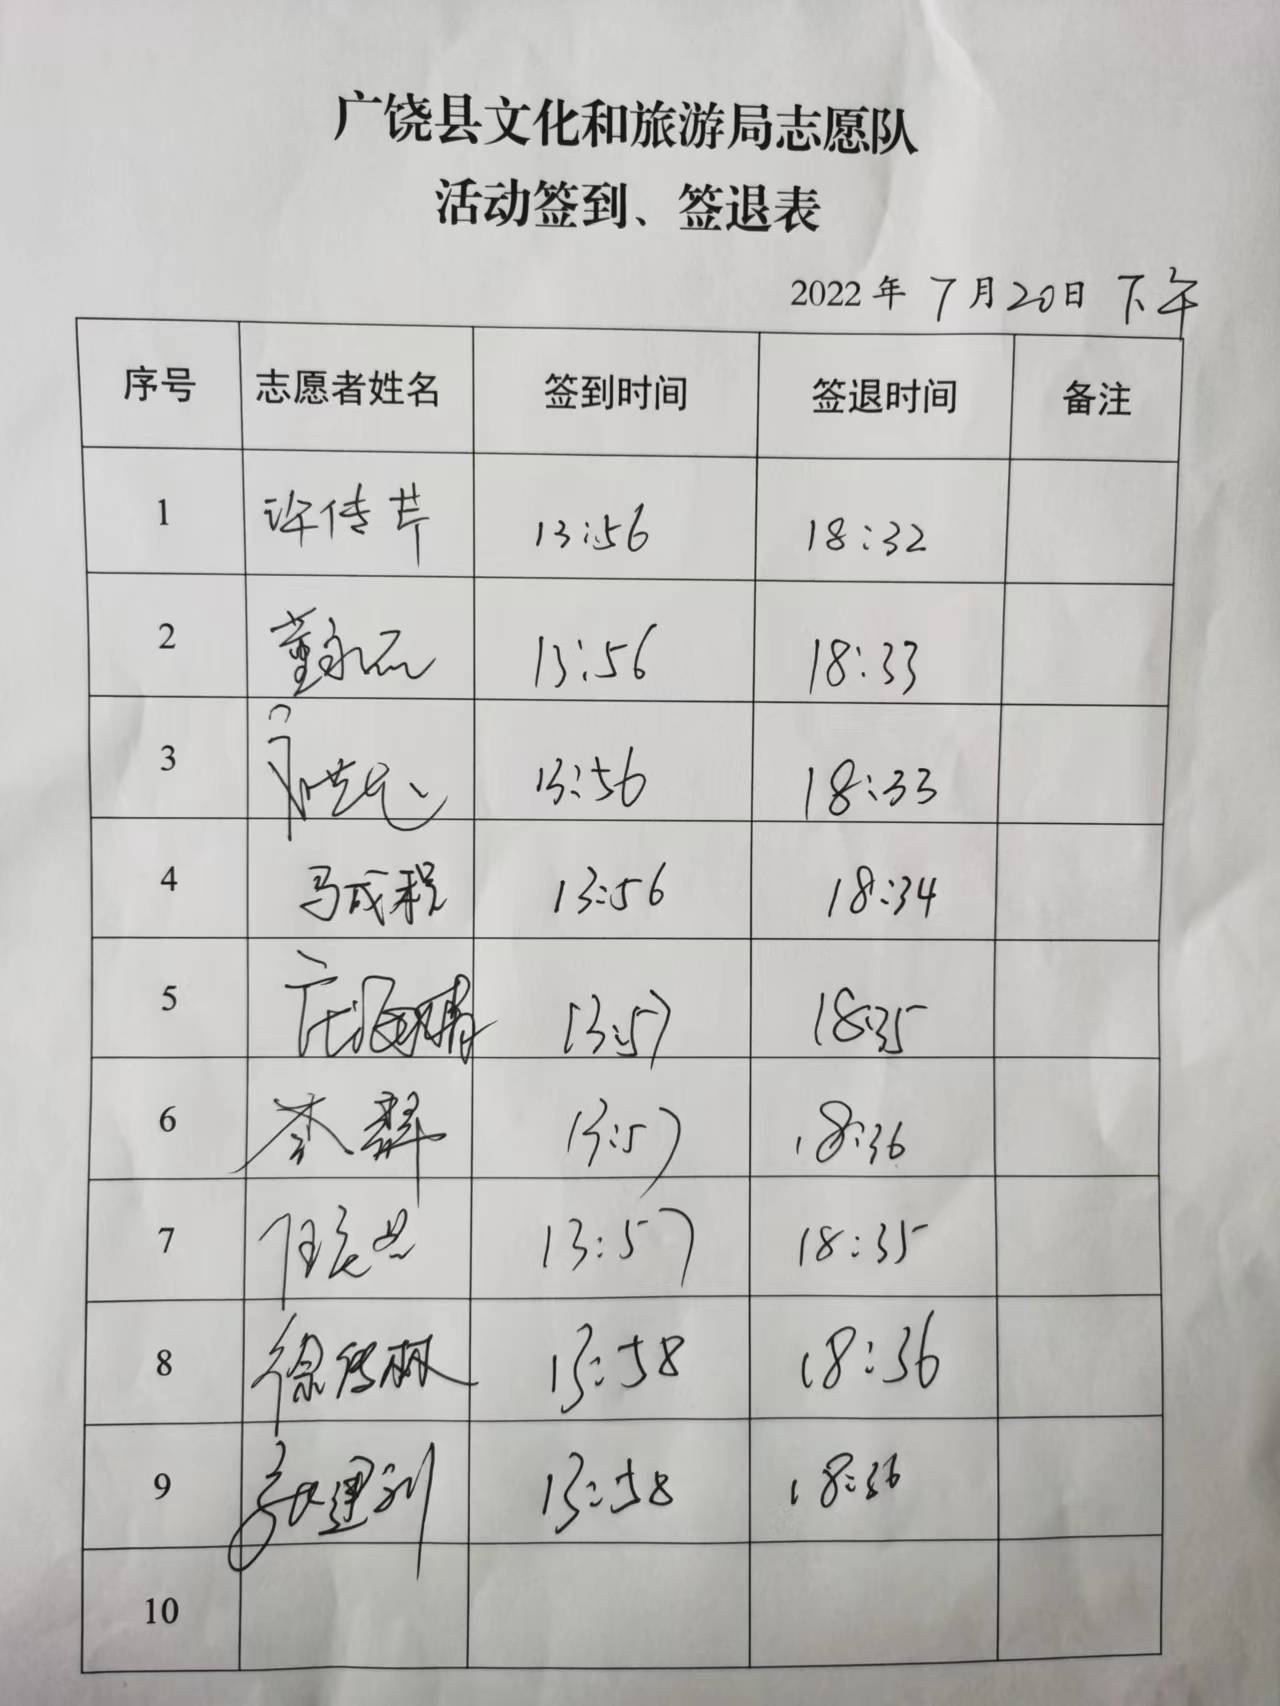 广饶县文化和旅游局志愿队
活动签到、签退表
2022 年 7月20日 下午
序号 志愿者姓名 签到时间 签退时间 备注
1 许传芹 13:56 18:32
2 董永石 13:56 18:33
3 13:56 18:33
4 马成程 13:56 18:34
5 13:57 18:35
6 李 13:57 18:36
7 任 13:57 18:35
8 徐传林 13:58 18:36
9 张建利 13:58 18:36
10